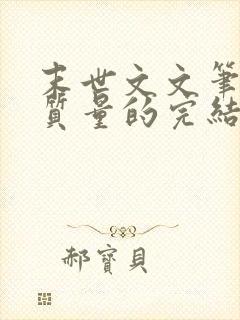 末世文文筆
質量的完結
郝寶貝